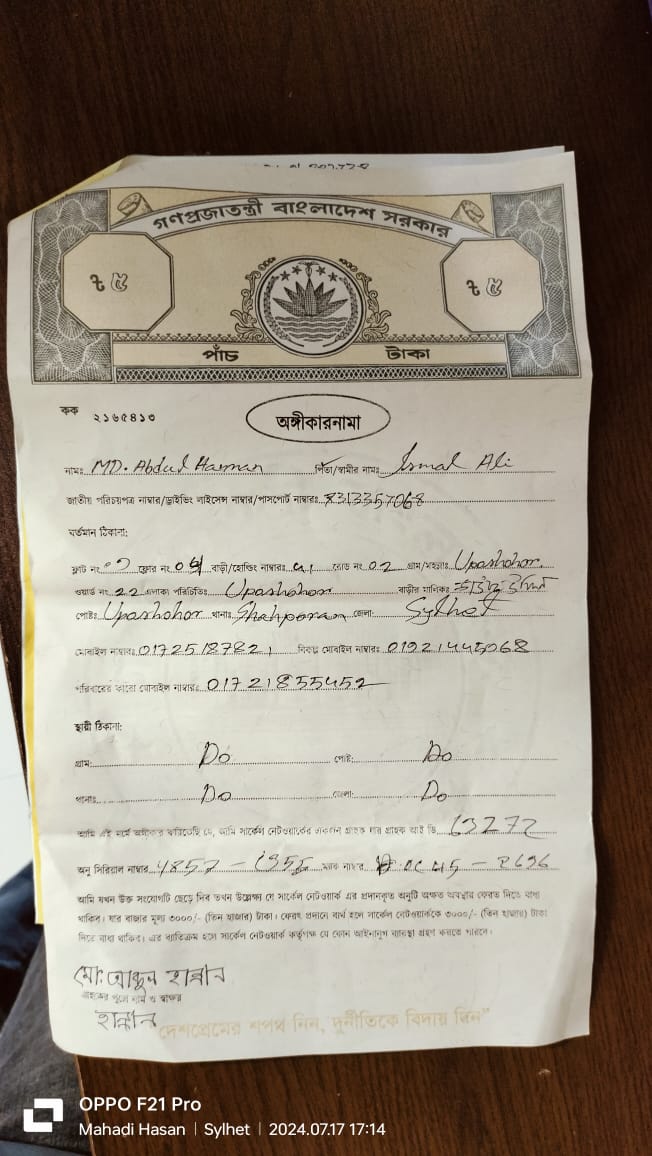 গণপ্রজাতন্ত্রী বাংলাদেশ সরকার
৳ ৫ ৳ ৫
পাঁচ টাকা
কক ২১৬৫৪১৩
অঙ্গীকারনামা
নামঃ MD. Abdul Hannan পিতা/স্বামীর নামঃ Ismal Ali
জাতীয় পরিচয়পত্র নাম্বার/ড্রাইভিং লাইসেন্স নাম্বার/পাসপোর্ট নাম্বারঃ 8313357068
বর্তমান ঠিকানা:
ফ্লাট নং ফ্লোর নং 04 বাড়ী/হোল্ডিং নাম্বারঃ রোড নং 02 গ্রাম/মহল্লাঃ Upashohor.
ওয়ার্ড নং 22 এলাকা পরিচিতিঃ Upashohor বাড়ীর মালিকঃ
পোষ্টঃ Upashohor থানাঃ Shahporan জেলা: Sylhet
মোবাইল নাম্বারঃ 01725187821 বিকল্প মোবাইল নাম্বারঃ 01921445068
পরিবারের কারো মোবাইল নাম্বারঃ 01721855452
স্থায়ী ঠিকানা:
গ্রাম: Do পোষ্ট: Do
থানাঃ Do জেলা: Do
আমি এই মর্মে অঙ্গীকার করিতেছি যে, আমি সার্কেল নেটওয়ার্কের একজন গ্রাহক যার গ্রাহক আই ডি 13272
অনু সিরিয়াল নাম্বার 4857 - ম্যাক নাম্বার
আমি যখন উক্ত সংযোগটি ছেড়ে দিব তখন উল্লেখ্য যে সার্কেল নেটওয়ার্ক এর প্রদানকৃত অনুটি অক্ষত অবস্থায় ফেরত দিতে বাধ্য
থাকিব। যার বাজার মূল্য ৩০০০/- (তিন হাজার) টাকা। ফেরৎ প্রদানে ব্যর্থ হলে সার্কেল নেটওয়ার্ককে ৩০০০/- (তিন হাজার) টাকা
দিতে বাধ্য থাকিব। এর ব্যতিক্রম হলে সার্কেল নেটওয়ার্ক কর্তৃপক্ষ যে কোন আইনানুগ ব্যবস্থা গ্রহণ করতে পারবে।
মো: আব্দুল হান্নান
গ্রাহকের পুরো নাম ও স্বাক্ষর
হান্নান
"দেশপ্রেমের শপথ নিন, দুর্নীতিকে বিদায় দিন"
OPPO F21 Pro
Mahadi Hasan | Sylhet | 2024.07.17 17:14